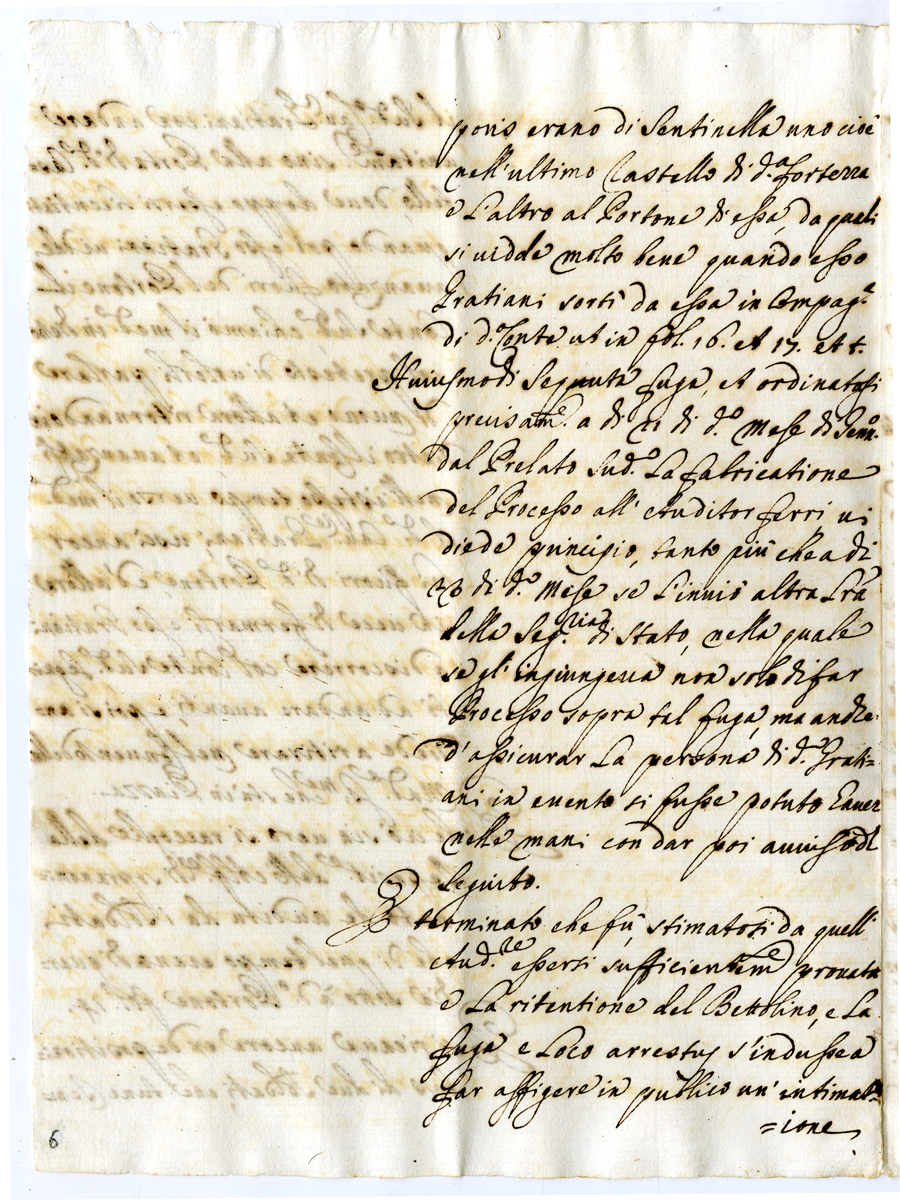 poris erano di Sentinella uno cioè
nell'ultimo Castello di d.a fortezza
e L'altro al Portone di essa, da quali
si uidde molto bene quando esso
Gratiani sortì da essa in Compag.a
di d.o Conte ut in fol. 16. et 17. et t.
Huiusmodi Seguuta fuga, et ordinatosi
precisam.e a di 21 di d.o Mese di
dal Prelato Sud.o La fabricatione
del Processo all' Auditor ferri ui
diede principio, tanto più che a di
di d.o Mese se L'inuiò altra Lrã
della Seg.ria di Stato, nella quale
se gl'ingiungeua non solo di far
Processo sopra tal fuga, ma anche
d'assicurar La persona di d.o Grati=
ani in euento si fusse potuto Hauer
nelle mani con dar poi auuiso del
Seguito.
E terminato che fù, stimatosi da quell'
Aud.re essersi sufficientem.e prouata
e La ritentione del Bettolino, e La
fuga e Loco arrestus s'indusse a
far affigere in publico un' intimat=
=ione
6